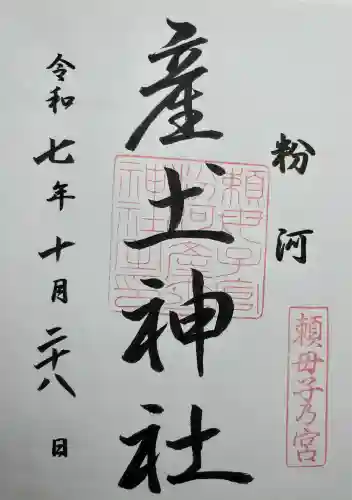 粉河
産土神社
令和七年十月二十八日
頼母子乃宮